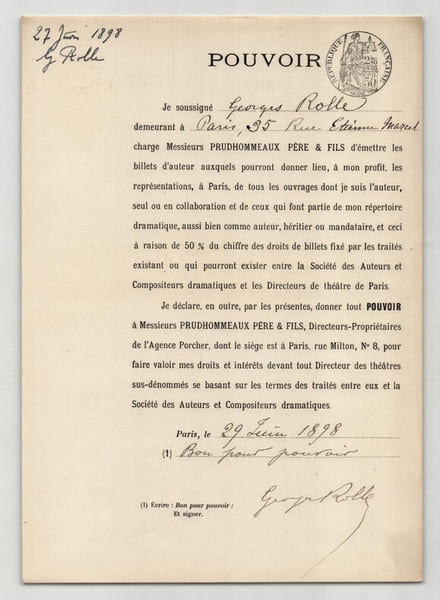 27 Juin 1898
G Rolle
POUVOIR
RÉPUBLIQUE FRANÇAISE
Je soussigné Georges Rolle
demeurant à Paris, 35 Rue Etienne Marcel
charge Messieurs PRUDHOMMEAUX PÈRE & FILS d'émettre les
billets d'auteur auxquels pourront donner lieu, à mon profit, les
représentations, à Paris, de tous les ouvrages dont je suis l'auteur,
seul ou en collaboration et de ceux qui font partie de mon répertoire
dramatique, aussi bien comme auteur, héritier ou mandataire, et ceci
à raison de 50 % du chiffre des droits de billets fixé par les traités
existant ou qui pourront exister entre la Société des Auteurs et
Compositeurs dramatiques et les Directeurs de théâtre de Paris.
Je déclare, en outre, par les présentes, donner tout POUVOIR
à Messieurs PRUDHOMMEAUX PÈRE & FILS, Directeurs-Propriétaires
de l'Agence Porcher, dont le siège est à Paris, rue Milton, No 8, pour
faire valoir mes droits et intérêts devant tout Directeur des théâtres
sus-dénommés se basant sur les termes des traités entre eux et la
Société des Auteurs et Compositeurs dramatiques.
Paris, le 29 Juin 1898
(1) Bon pour pouvoir
Georges Rolle
(1) Écrire : Bon pour pouvoir :
Et signer.